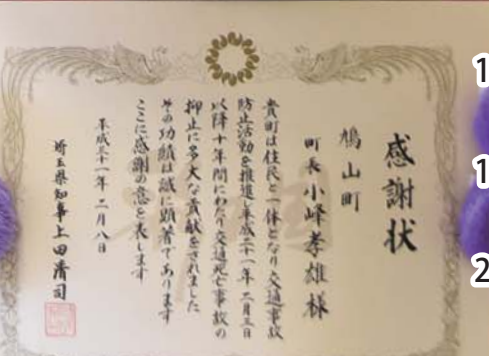 感謝状
鳩山町
町長 小峰孝雄様
貴町は住民と一体となり交通事故
防止活動を推進し平成二十一年二月三日
以降十年間にわたり交通死亡事故の
抑止に多大な貢献をされました
その功績は誠に顕著であります
ここに感謝の意を表します
平成三十一年二月八日
埼玉県知事上田清司
1
1
2